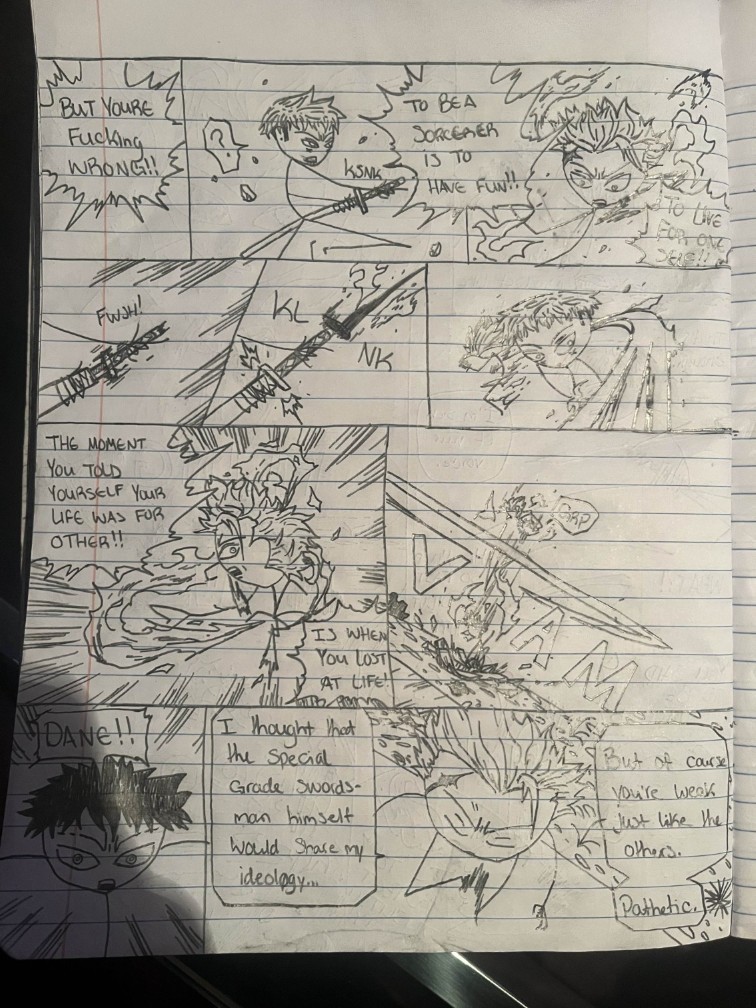 BUT YOURE
Fucking
WRONG!!
?
KSNK
TO BE A
SORCERER
IS TO
HAVE FUN!!
TO LIVE
FOR ONE
SELF!!
FWSH!
KL
NK
THE MOMENT
YOU TOLD
YOURSELF YOUR
LIFE WAS FOR
OTHER!!
IS WHEN
YOU LOST
AT LIFE!
SLAM
DANE!!
I thought that
the special
Grade swords-
man himself
would share my
ideology...
But of course
you're weak
Just like the
others.
Pathetic.